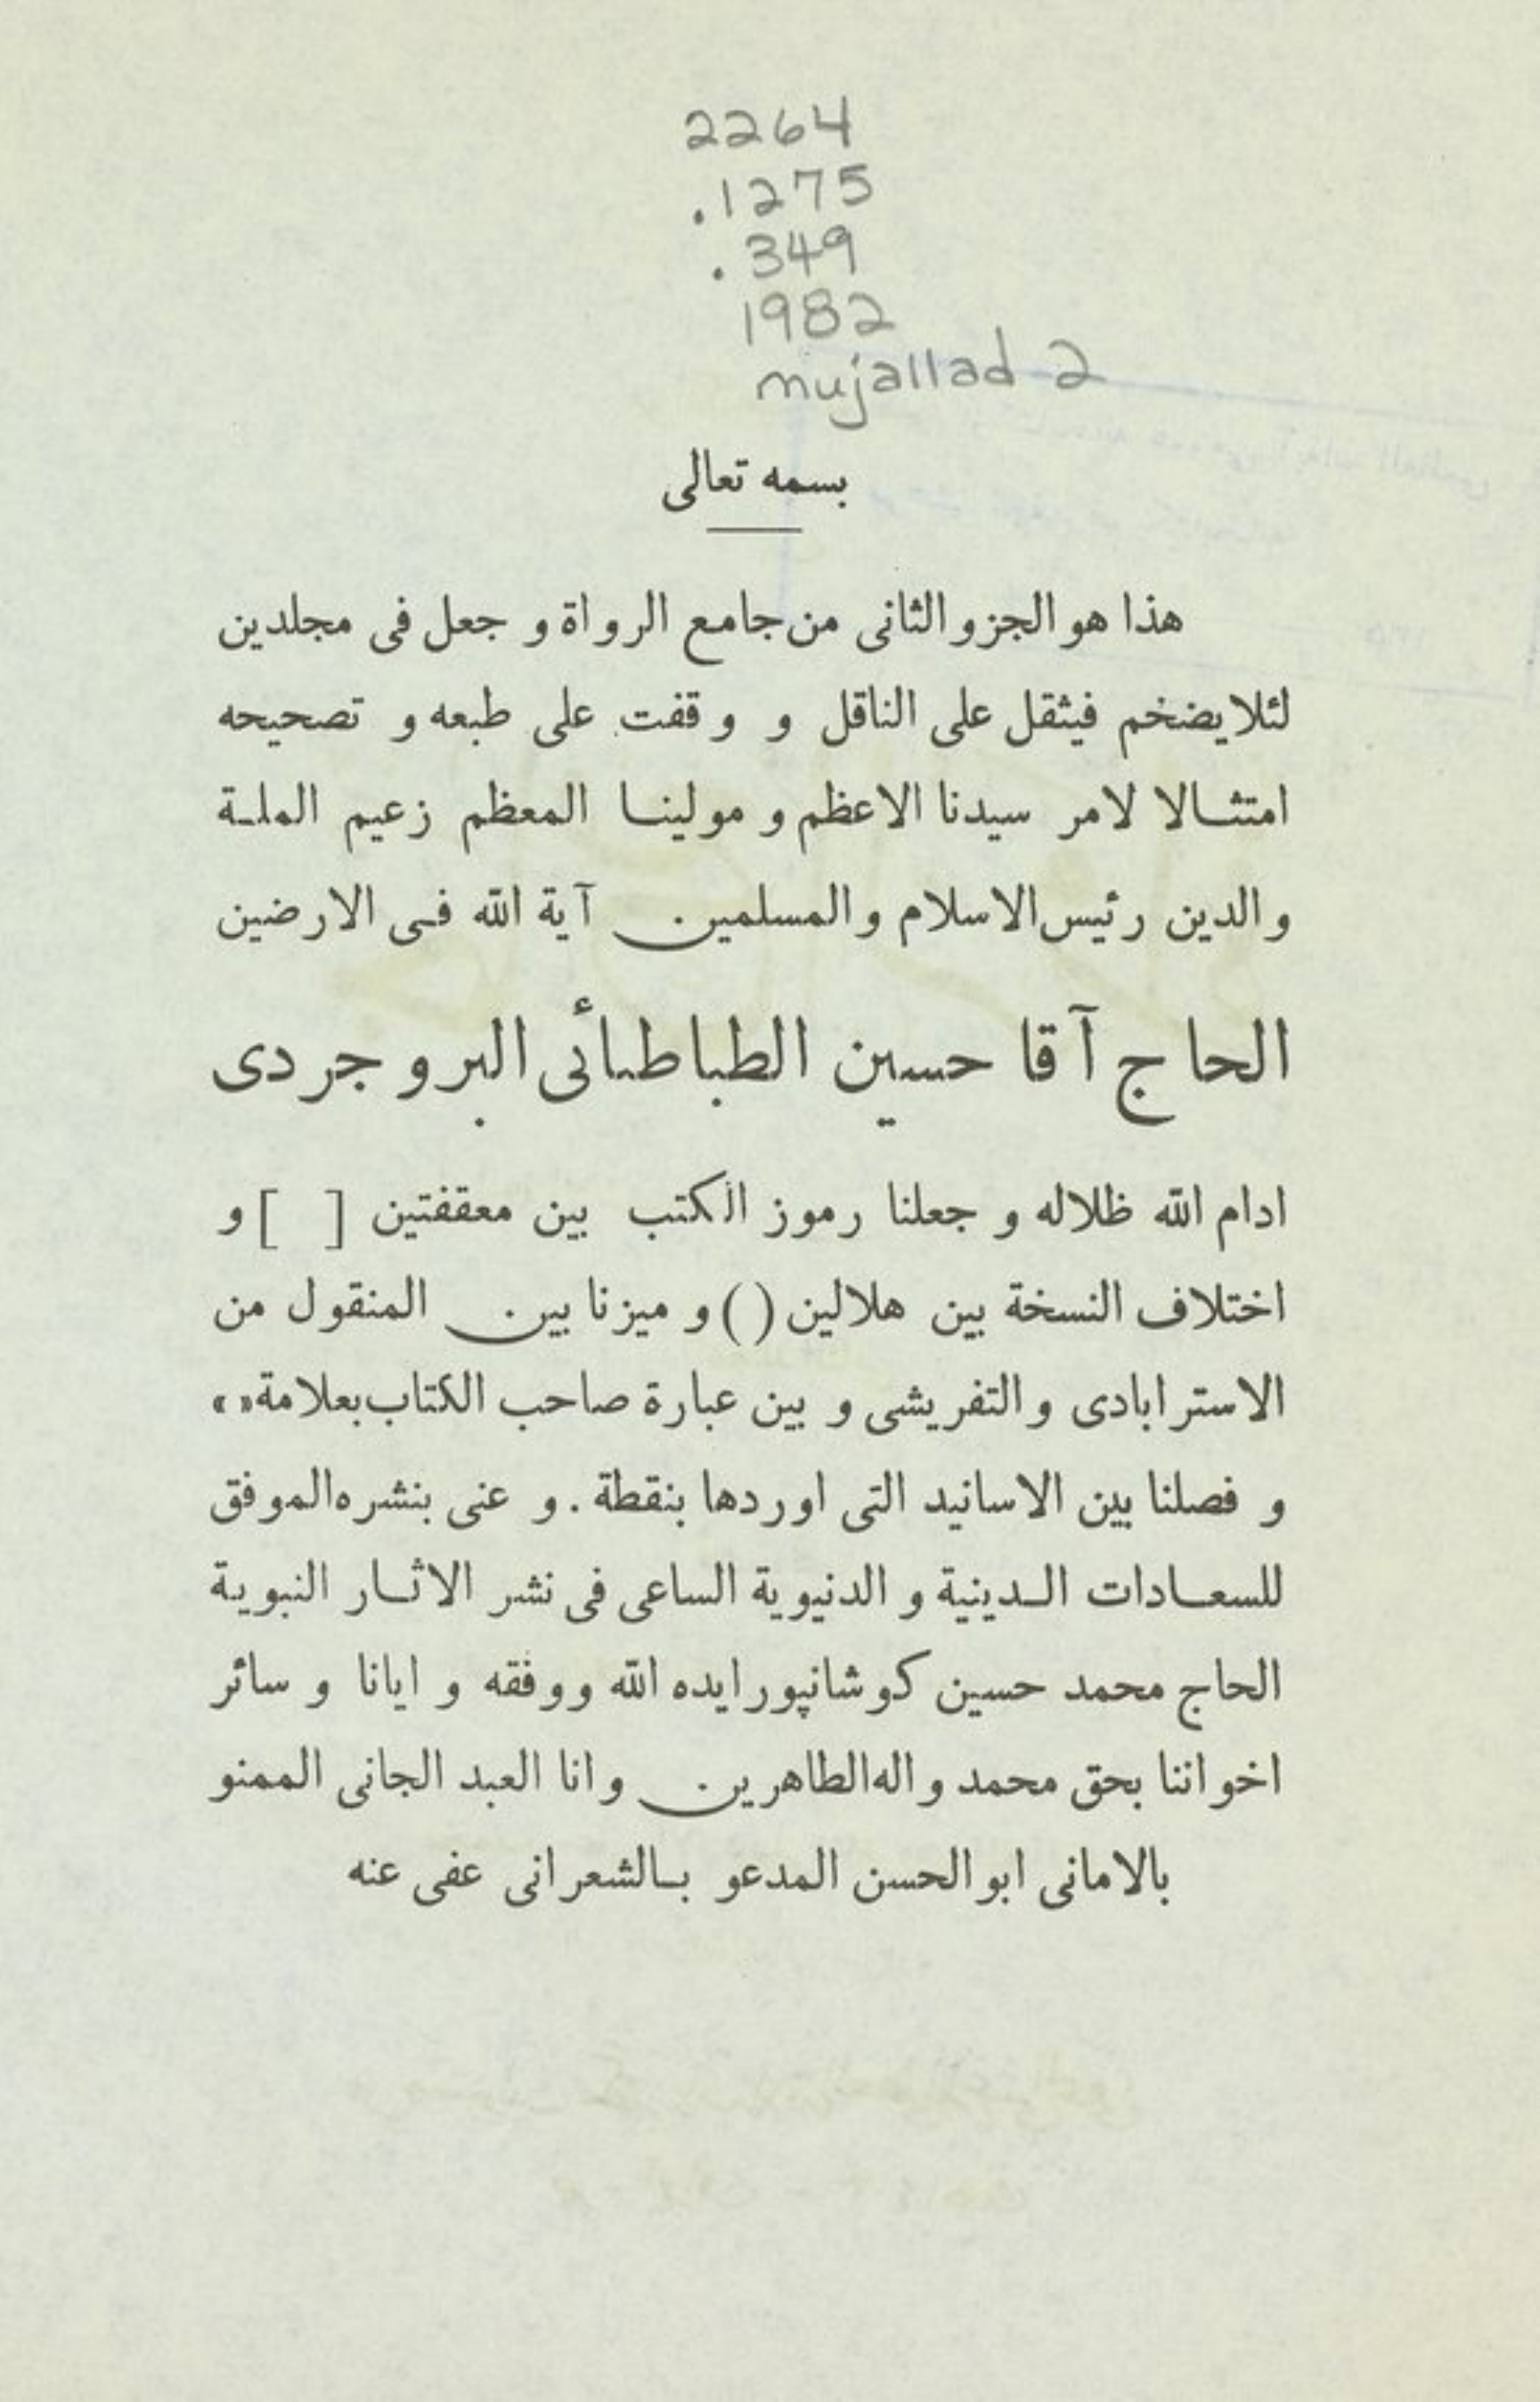 2264
.1275
.349
1982
mujallad 2
بسمه تعالى
هذا هو الجزو الثانى من جامع الرواة و جعل فى مجلدين
لئلا يضخم فيثقل على الناقل و وقفت على طبعه و تصحيحه
امتثالا لامر سيدنا الاعظم و مولينا المعظم زعيم الملة
والدين رئيس الاسلام والمسلمين آية الله فى الارضين
الحاج آقا حسين الطباطبائى البروجردى
ادام الله ظلاله و جعلنا رموز الكتب بين معقفتين [ ] و
اختلاف النسخة بين هلالين ( ) و ميزنا بين المنقول من
الاسترابادى والتفريشى و بين عبارة صاحب الكتاب بعلامة « »
و فصلنا بين الاسانيد التى اوردها بنقطة . و عنى بنشره الموفق
للسعادات الدينية و الدنيوية الساعى فى نشر الاثار النبوية
الحاج محمد حسين كوشانپور ايده الله ووفقه و ايانا و سائر
اخواننا بحق محمد واله الطاهرين وانا العبد الجانى الممنو
بالامانى ابوالحسن المدعو بالشعرانى عفى عنه